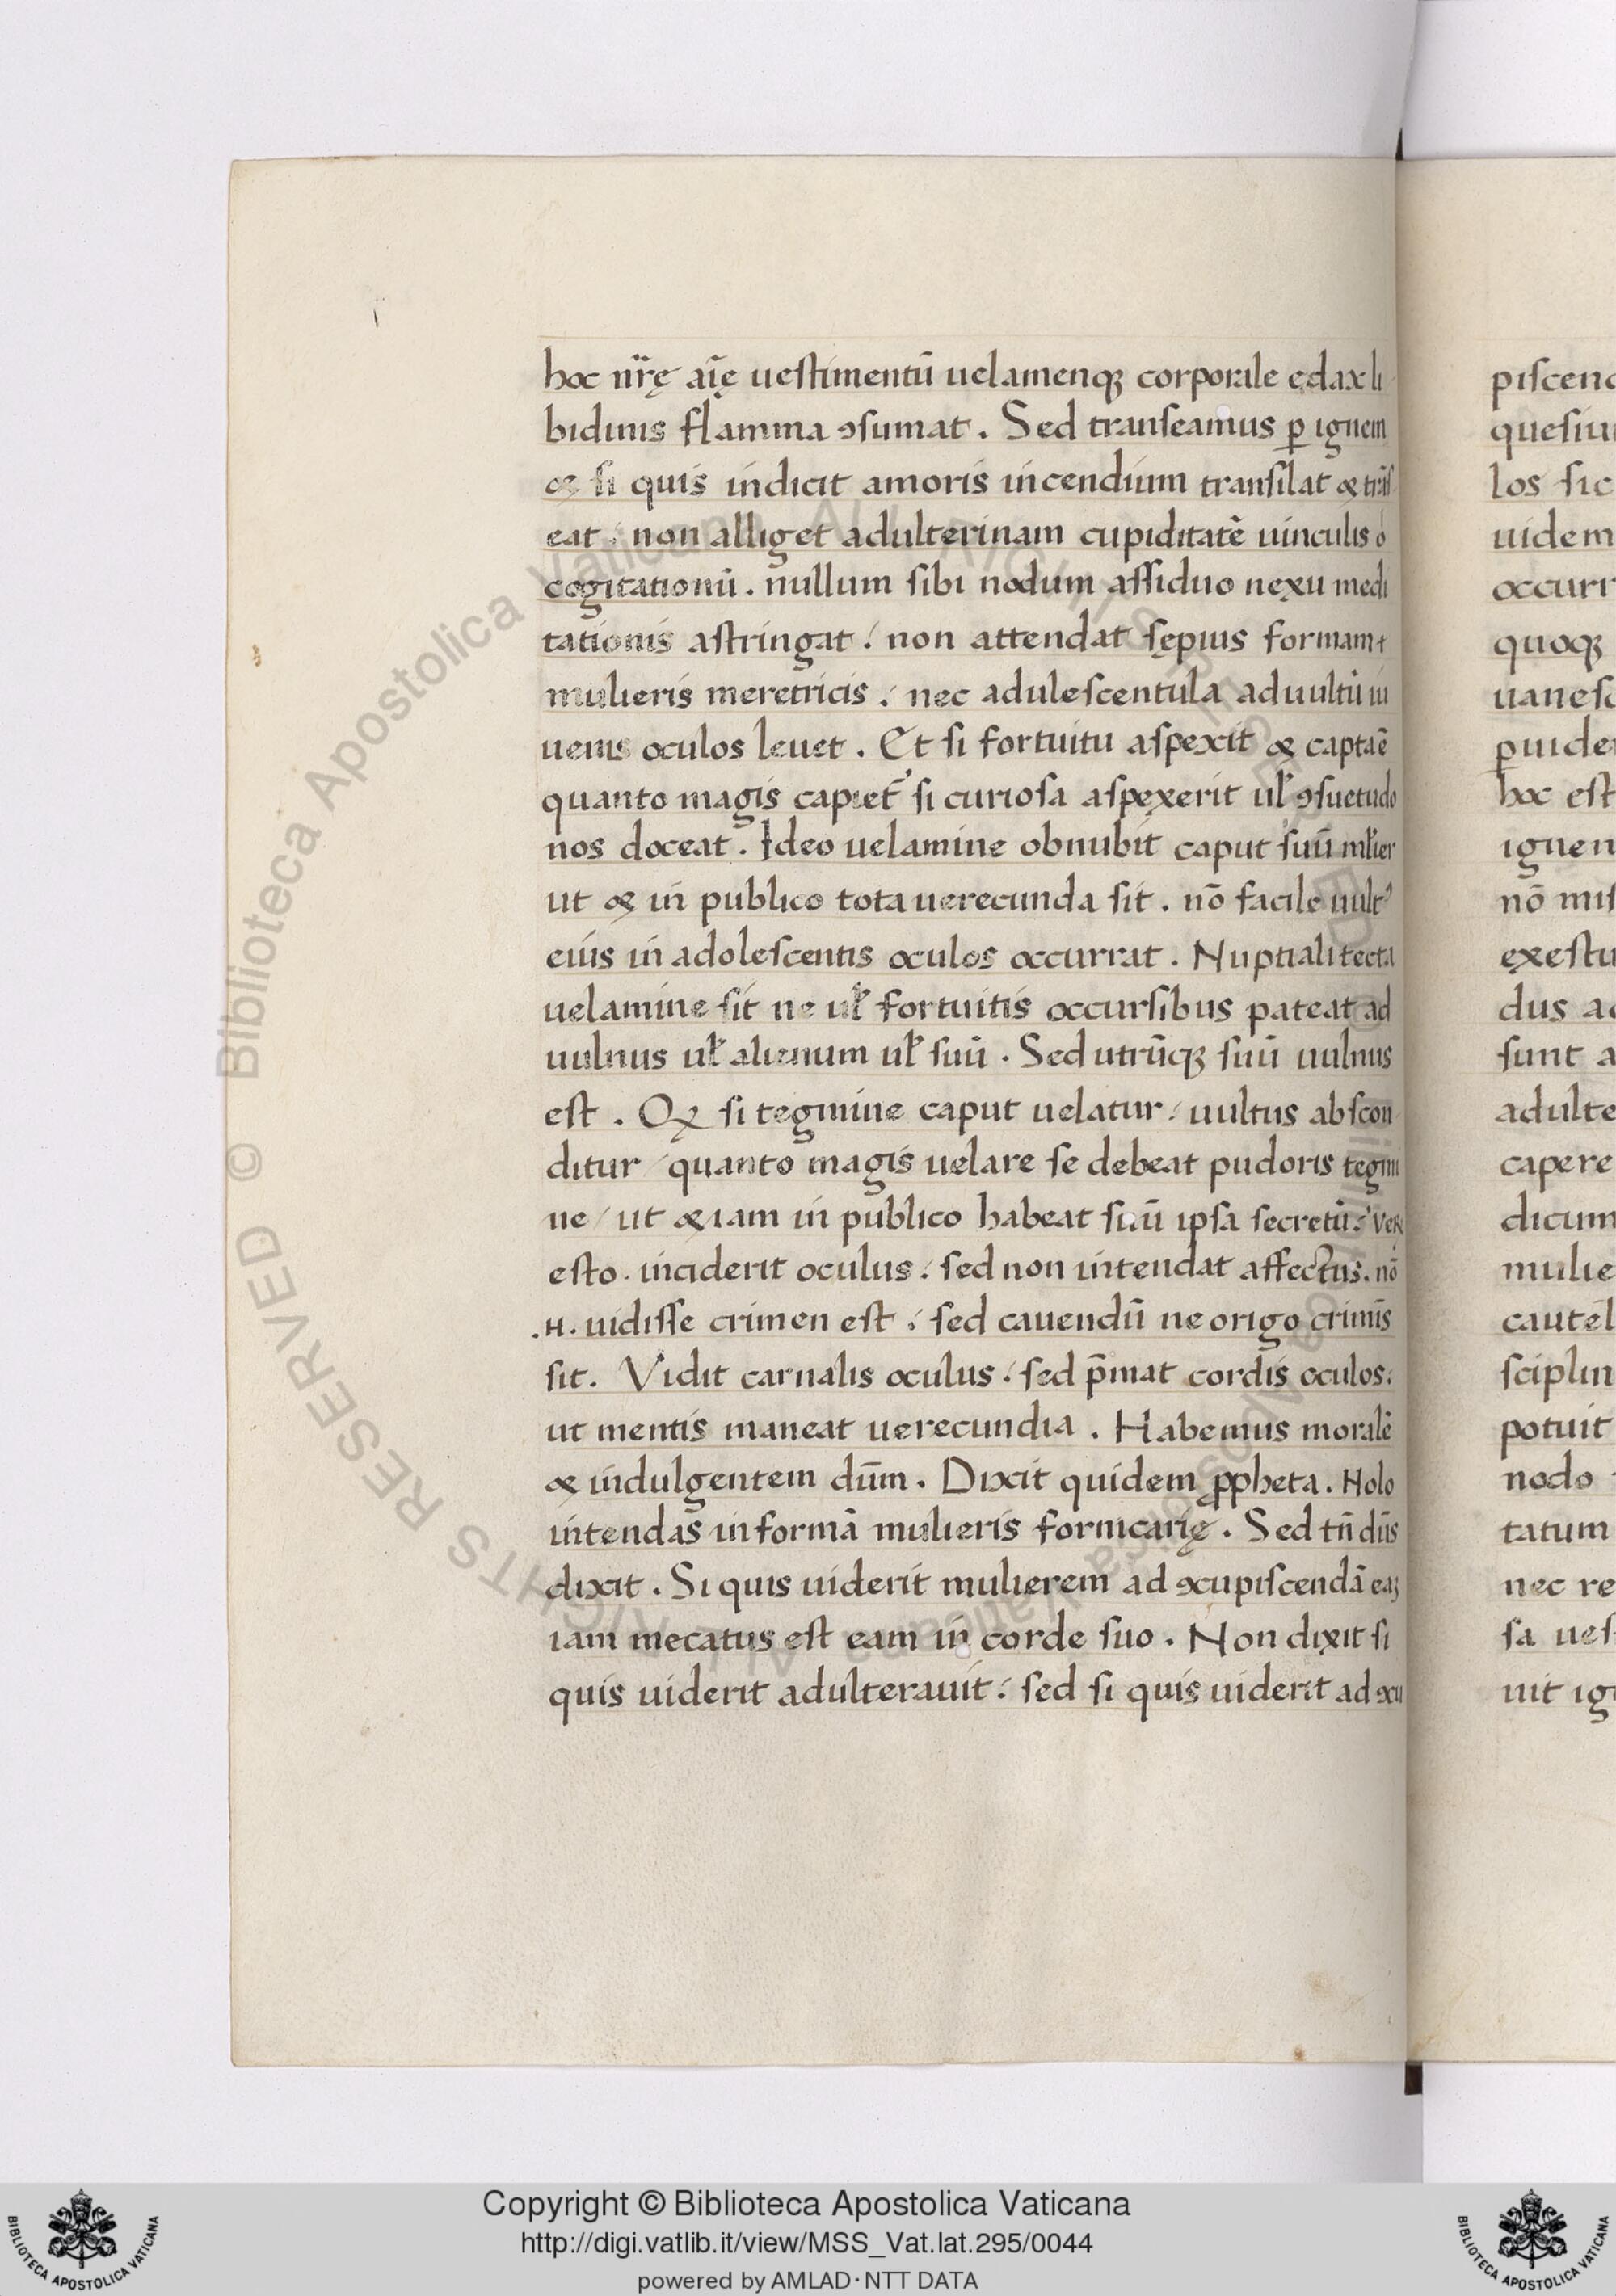 hoc nr̄ę aīę uestimentū uelamenqꝫ corporale edax li
bidinis flamma ꝯsumat. Sed transeamus ꝑ ignem
& si quis indicit amoris incendium transilat & trāſ
eat: non alliget adulterinam cupiditatē uinculis
cogitationū. nullum sibi nodum assiduo nexu medi
tationis astringat: non attendat sępius formam
mulieris meretricis: nec adulescentula ad uultū iu
uenis oculos leuet. Et si fortuitu aspexit & capta ē
quanto magis capiet᷑ si curiosa aspexerit ul̄ ꝯsuetudo
nos doceat. Ideo uelamine obnubit caput suū ml̄ier
ut & in publico tota uerecunda sit. nō facile uultꝰ
eius in adolescentis oculos occurrat. Nuptiali tecta
uelamine sit ne ul̄ fortuitis occursibus pateat ad
uulnus ul̄ alienum ul̄ suū. Sed utrūqꝫ suū uulnus
est. Qꝫ si tegmine caput uelatur / uultus abscon
ditur / quanto magis uelare se debeat pudoris tegmi
ne / ut & iam in publico habeat suū ipsa secretū: Veꝝ
esto. inciderit oculus: sed non intendat affectus. nō
.H. uidisse crimen est: sed cauendū ne origo crimīs
sit. Vidit carnalis oculus: sed p̄mat cordis oculos:
ut mentis maneat uerecundia. Habemus moralē
& indulgentem dūm. Dixit quidem ꝓpheta. Nolo
intendas in formā mulieris fornicarię. Sed tn̄ dūs
dixit. Si quis uiderit mulierem ad ꝯcupiscendā eaꝫ
iam mecatus est eam in corde suo. Non dixit si
quis uiderit adulterauit: sed si quis uiderit ad ꝯcu
piscen
quesiu
los sic
uidem
occurr
quoqꝫ
uanesc
ꝑuide
hoc est
ignen
nō mis
exestu
dus a
sunt a
adulte
capere
dicum
mulie
cautel
sciplin
potuit
nodo
tatum
nec re
sa ues
uit ig
© Biblioteca Apostolica Vaticana ALL RIGHTS RESERVED
BIBLIOTECA APOSTOLICA VATICANA
Copyright © Biblioteca Apostolica Vaticana
http://digi.vatlib.it/view/MSS_Vat.lat.295/0044
powered by AMLAD·NTT DATA
BIBLIOTECA APOSTOLICA VATICANA